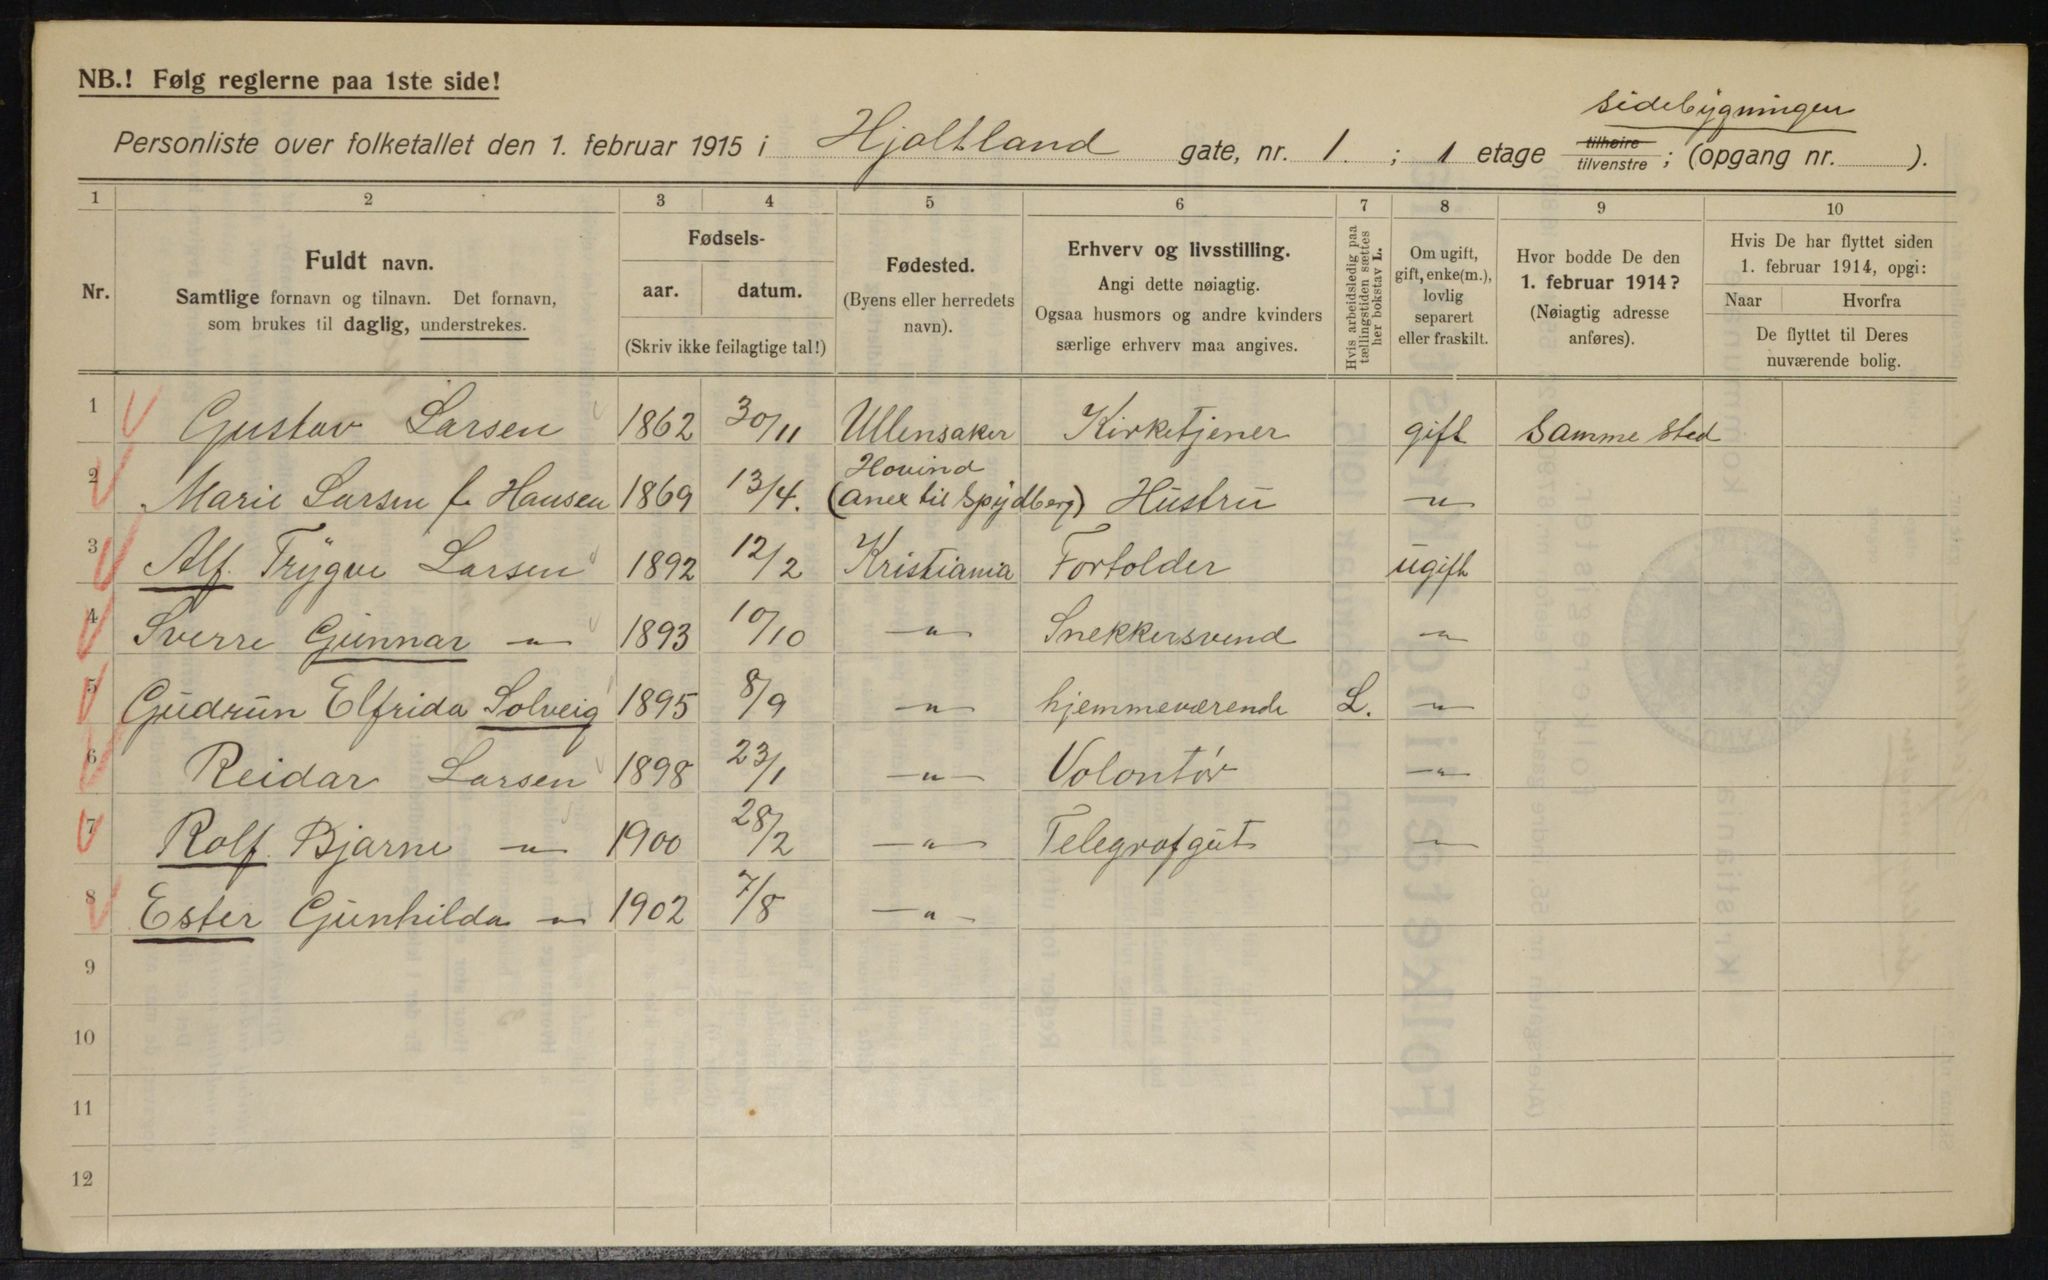 NB.! Følg reglerne paa 1ste side!
sidebygningen
Personliste over folketallet den 1. februar 1915 i Hjaltland gate, nr. 1. ; 1 etage tilhøire tilvenstre ; (opgang nr. ).
1 2 3 4 5 6 7 8 9 10
Nr.
Fuldt navn.
Samtlige fornavn og tilnavn. Det fornavn,
som brukes til daglig, understrekes.
Fødsels-
aar. datum.
(Skriv ikke feilagtige tal!)
Fødested.
(Byens eller herredets
navn).
Erhverv og livsstilling.
Angi dette nøiagtig.
Ogsaa husmors og andre kvinders
særlige erhverv maa angives.
Hvis arbeidsledig paa
tællingstiden sættes
her bokstav L.
Om ugift,
gift, enke(m.),
lovlig
separert
eller fraskilt.
Hvor bodde De den
1. februar 1914?
(Nøiagtig adresse
anføres).
Hvis De har flyttet siden
1. februar 1914, opgi:
Naar Hvorfra
De flyttet til Deres
nuværende bolig.
1 Gustav Larsen 1862 30/11 Ullensaker Kirketjener gift Samme sted
2 Marie Larsen f. Hansen 1869 13/4. Hovind (anex til Spydberg) Hustru -"-
3 Alf Trygve Larsen 1892 12/2 Kristiania Fortolder ugift
4 Sverre Gunnar -"- 1893 10/10 -"- Snekkersvend -"-
5 Gudrun Elfrida Solveig 1895 8/9 -"- hjemmeværende L. -"-
6 Reidar Larsen 1898 23/1 -"- Volontør -"-
7 Rolf Bjarne -"- 1900 28/2 -"- Telegrafgut -"-
8 Ester Gunhilda -"- 1902 7/8 -"-
9
10
11
12